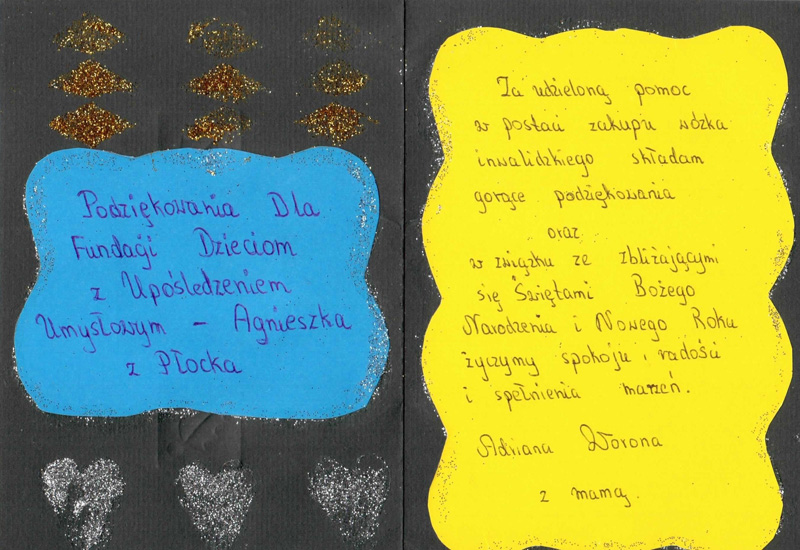 Podziękowania Dla
Fundacji Dzieciom
z Upośledzeniem
Umysłowym - Agnieszka
z Płocka
Za udzieloną pomoc
w postaci zakupu wózka
inwalidzkiego składam
gorące podziękowania
oraz
w związku ze zbliżającymi
się Świętami Bożego
Narodzenia i Nowego Roku
życzymy spokoju, radości
i spełnienia marzeń.
Adriana Worona
z mamą.